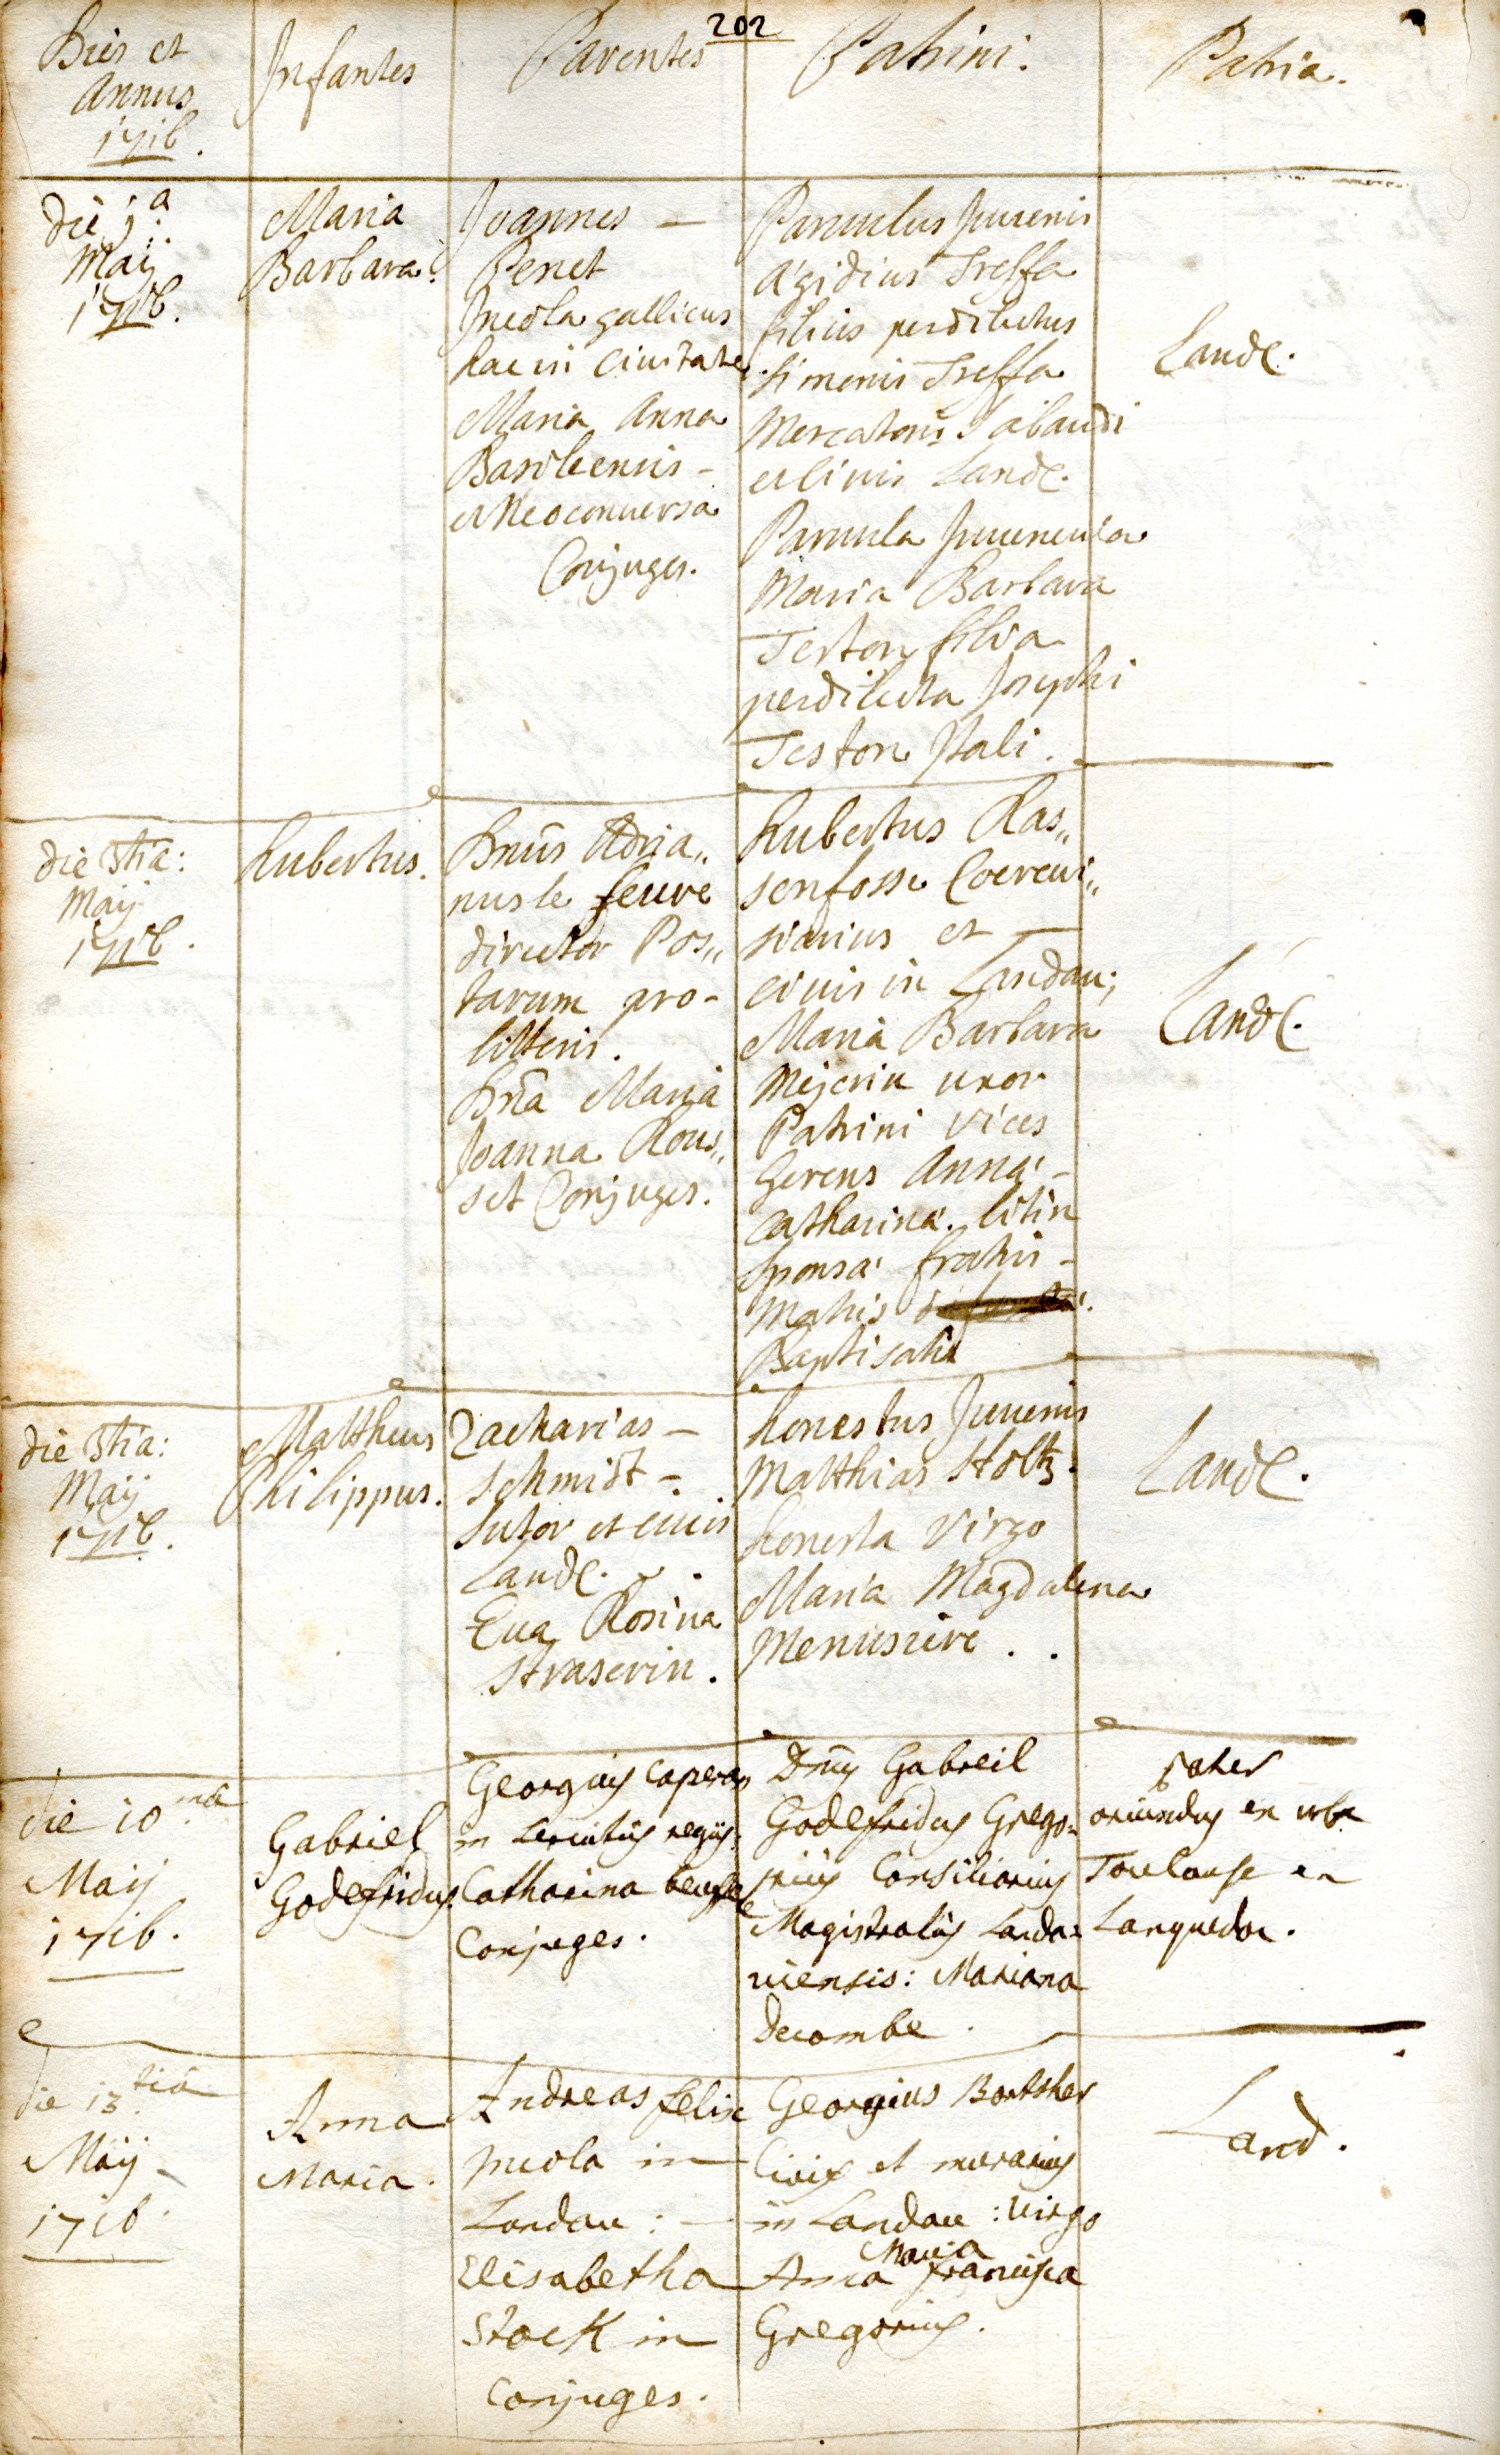 202
Dies et
Annus
1716.
Infantes
Parentes
Patrini.
Patria.
die 1a:
Maij
1716.
Maria
Barbara.
Joannes —
Penet
Incola gallicus
hac in Ciuitate.
Maria Anna
Basileensis -
et Neoconuersa
Conjuges.
Paruulus Juuenis
Ägidius Treffa
filius perdilectus
Simonis Treffa
Mercatoris Sabaudi
et Civis Landa.
Paruula Juuencula
Maria Barbara
Teston filia
perdilecta Josephi
Teston Itali.
Landa.
die 5tia:
Maij
1716.
Hubertus.
Dnus Adria„
nus le feuvre
director Pos„
tarum pro-
litteris.
Dna Maria
Joanna Rous„
set Conjuges.
Hubertus Ras„
senfosse Coerevi„
siarius et —
civis in Landau;
Maria Barbara
Mejerin uxor
Patrini vices
Gerens Anna -
Catharina. litin
Sponsa fratris -
Matris
Baptisati
Landa.
die 5tia:
Maij
1716.
Mattheus
Philippus.
Zacharias —
Schmidt -
Sutor et ciuis
Landa.
Eua Rosina
Straserin.
honestus Juuenis
Matthias Holtz.
honesta Virgo
Maria Magdalena
Menusire . .
Landa.
die 10ma
Maij
1716.
Gabriel
Godefridus.
Georgius Caperan
in servitiis regiis.
Catharina
Conjuges.
Dnus Gabreil
Godefridus Grego=
rius Consiliarius
Magistralis Landa=
uiensis: Mariana
Decombe.
pater
oriundus ex urbe
Toulouse en
Languedoc.
die 13tia
Maij
1716.
Anna
Maria.
Andreas felix
Incola in
Landau: —
Elisabetha
Stock in
Conjuges.
Georgius Bortsher
Civis et murarius
in Landau: Virgo
Maria
Anna francisca
Gregorius.
Land.